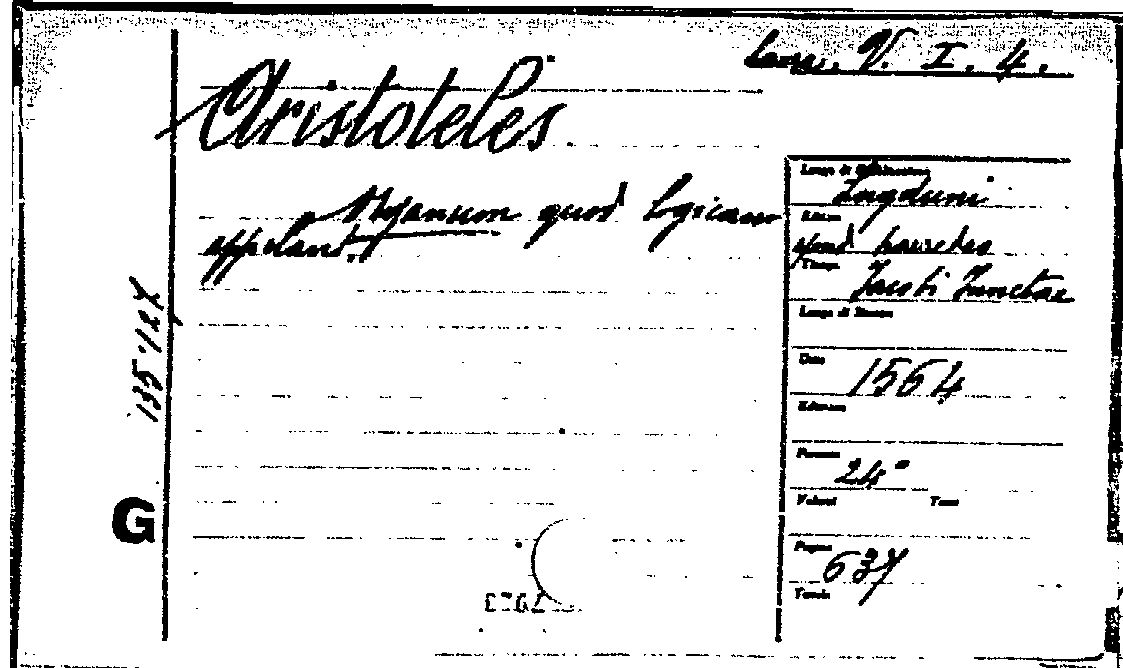 Lom. V. I. 4.
Aristoteles
Organum quod logicam
appelant.
Luogo di Pubblicazione
Lugduni
Editore
apud haeredes
Tipogr.
Jacobi Junctae
Luogo di Stampa
Data
1564
Edizione
Formato
24°
Volumi Tomi
Pagine
637
Tavole
135424
G